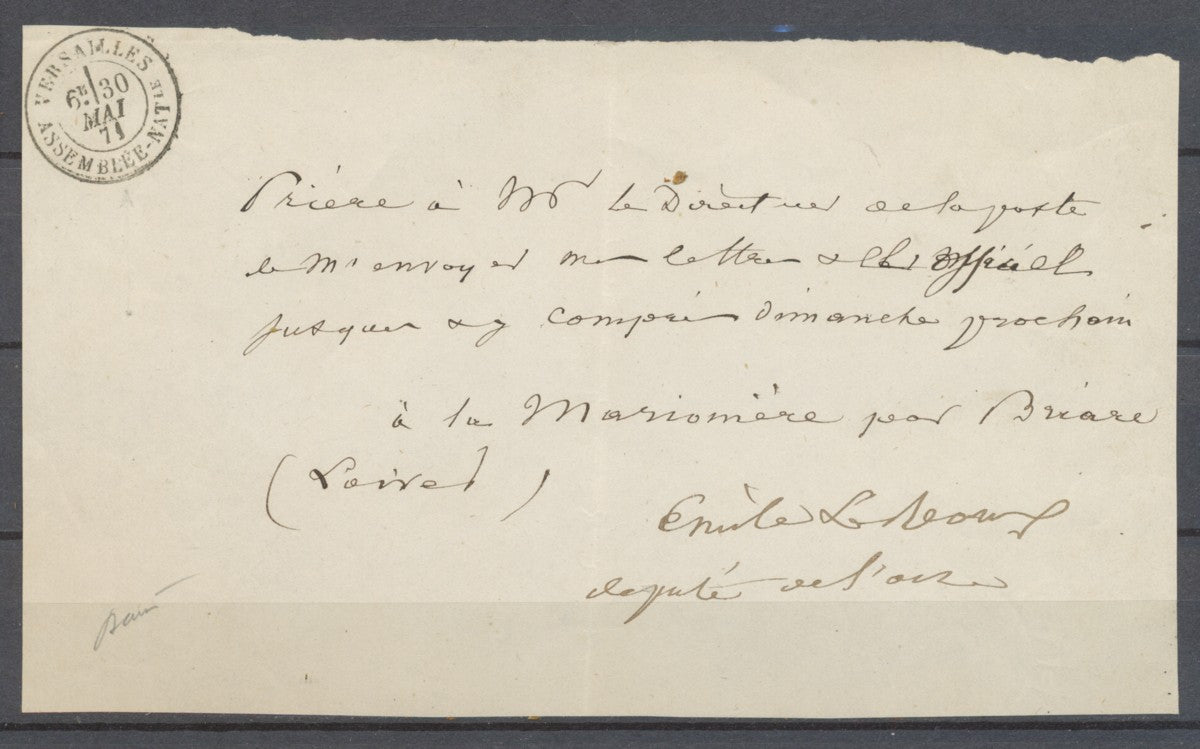 VERSAILLES
ASSEMBLÉE-NATLE
6E 30
MAI
71
Prière à Mr le Directeur de la poste
de m'envoyer mes lettres & l'officiel
jusques & y compris dimanche prochain
à la Marionière par Briare
(Loiret)
Emile Leroux
député de l'oise